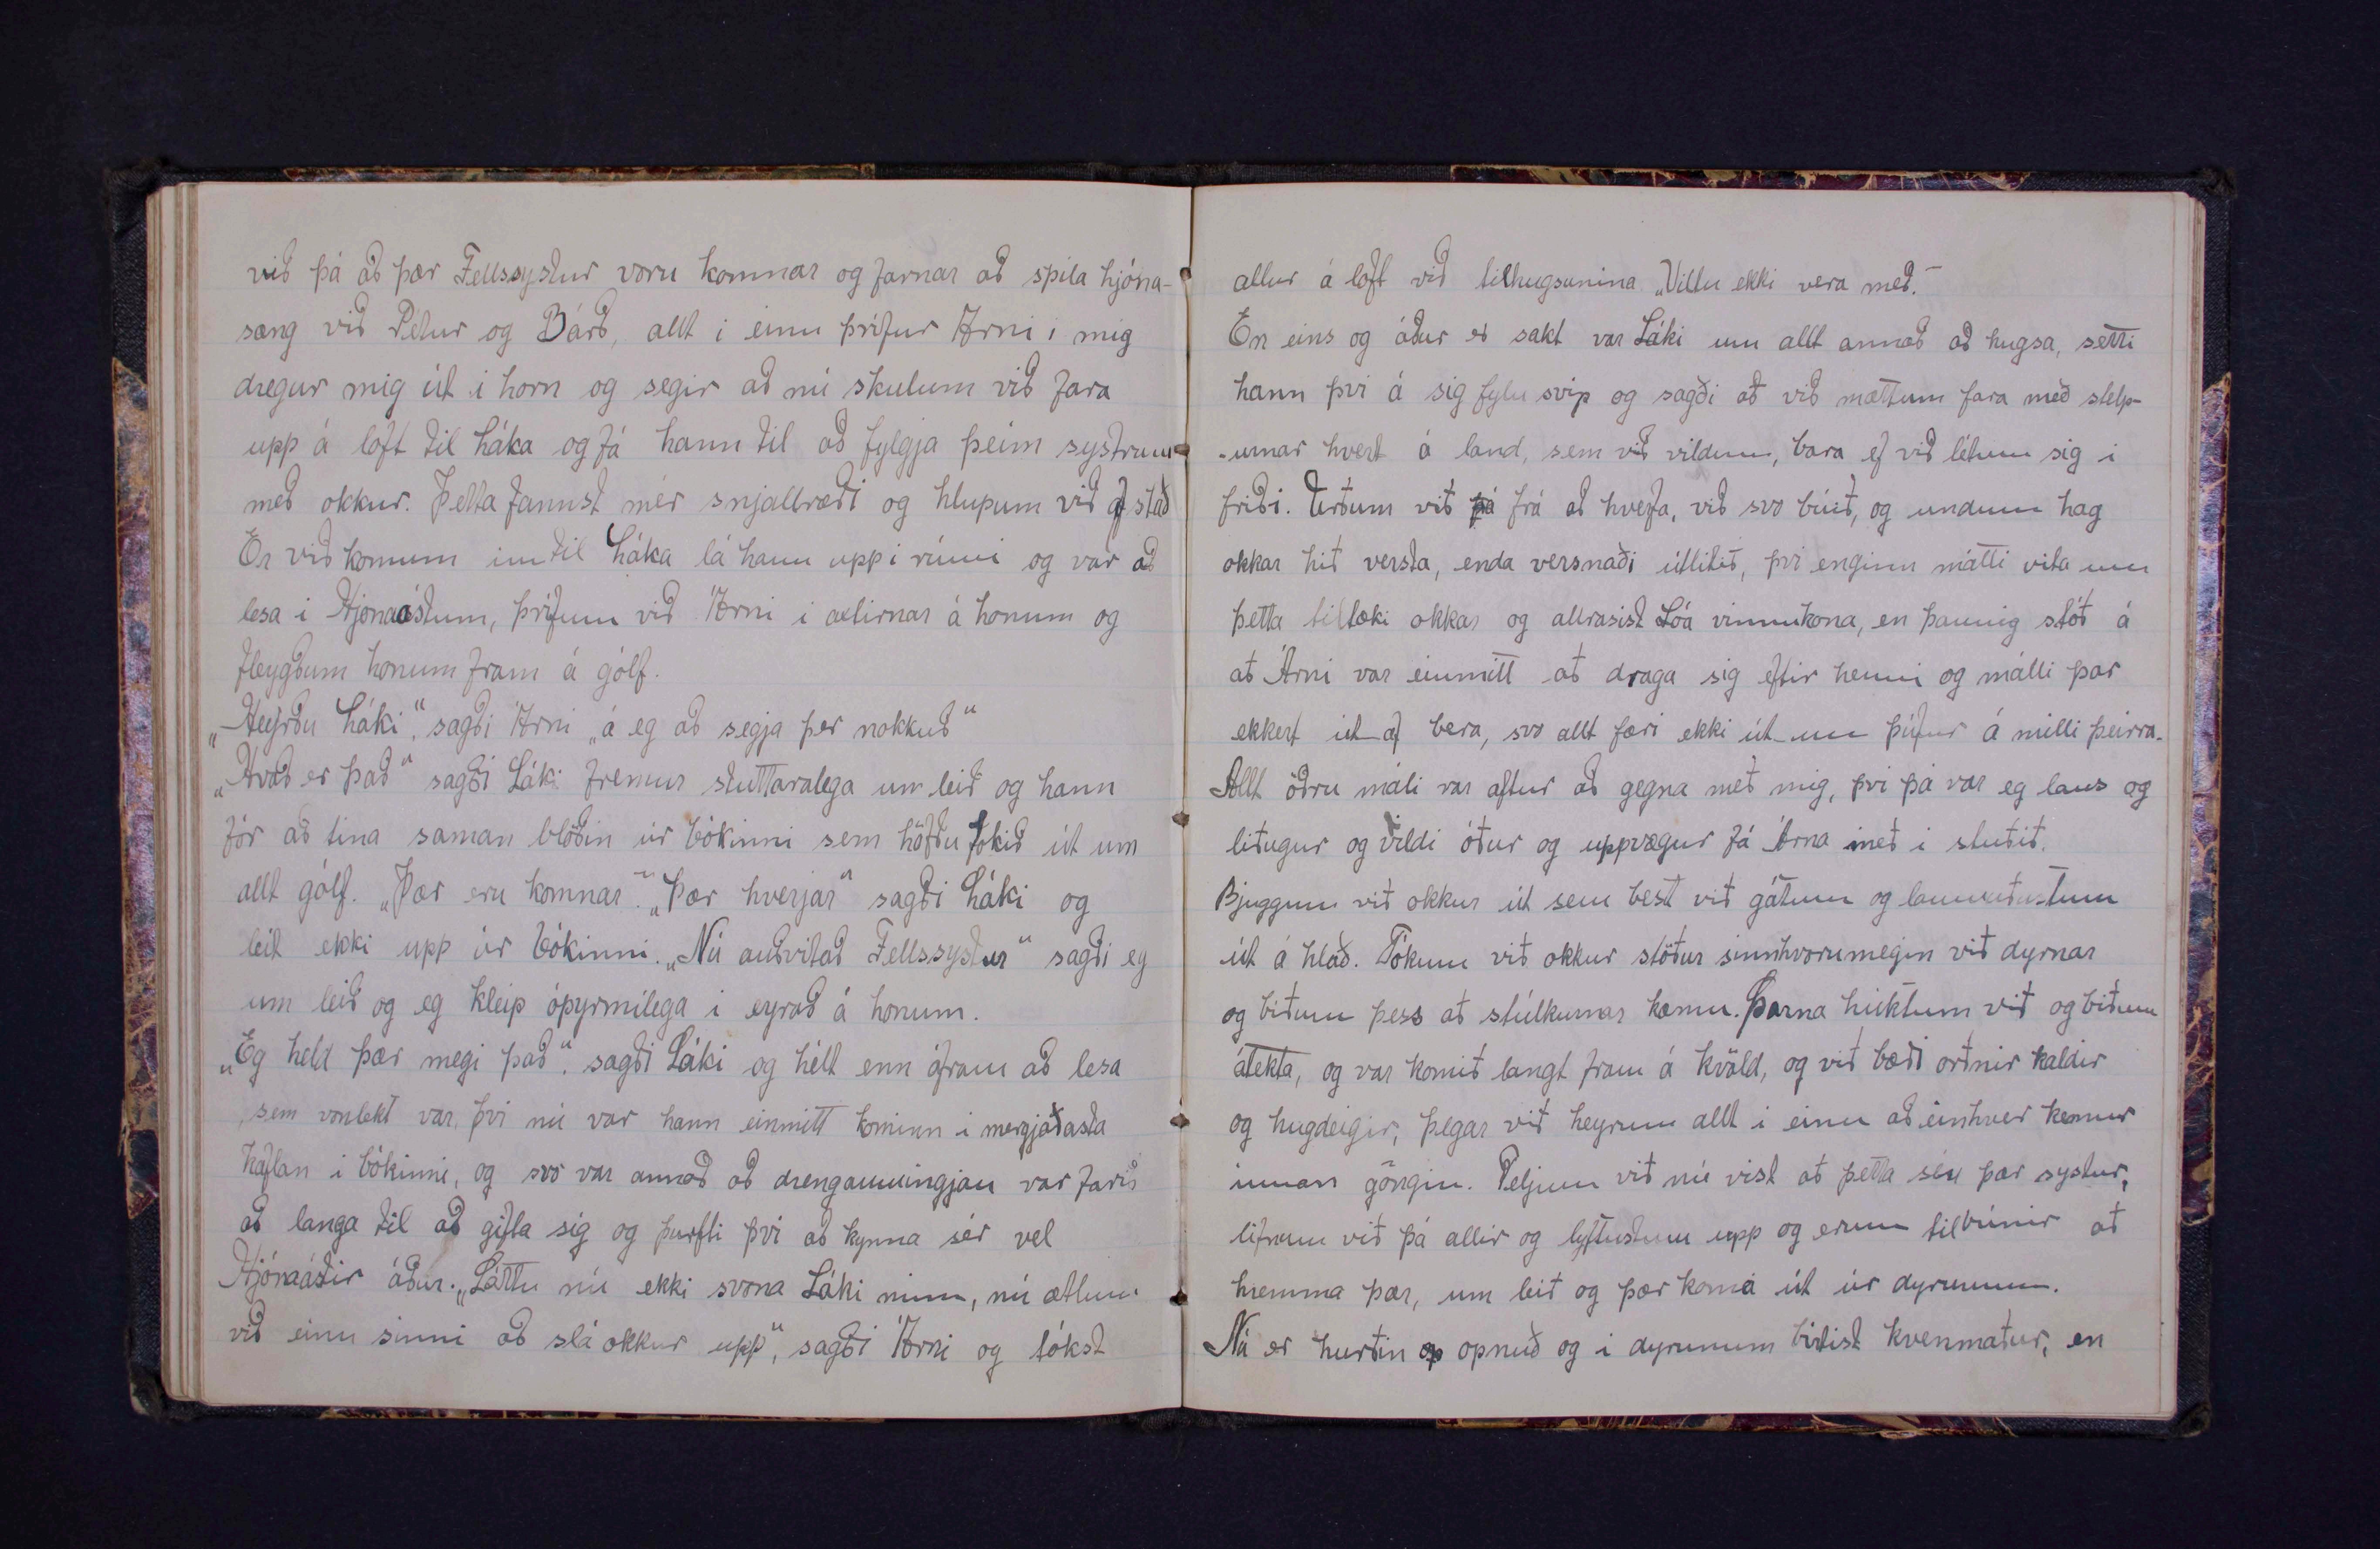 við þá að þær Fellssystur voru komnar og farnar að spila hjóna-
sæng við Pétur og Bárð, allt i einu þrifur Árni i mig
dregur mig út i horn og segir að nú skulum við fara
upp á loft til Láka og fá hann til að fylgja þeim systrum
með okkur. Þetta fannst mér snjallræði og hlupum við af stað
Er við komum inn til Láka lá hann upp i rúmi og var að
lesa i Hjónaástum, þrifum við Árni i axlirnar á honum og
fleygðum honum fram á gólf.
„Heyrðu Láki", sagði Árni „á eg að segja þer nokkuð"
„Hvað er það" sagði Láki fremur stuttaralega um leið og hann
fór að tina saman blöðin úr bókinni sem höfðu fokið út um
allt gólf. „Þær eru komnar". „Þær hverjar" sagði Láki og
leit ekki upp úr bókinni. „Nú auðvitað Fellssystur" sagði eg
um leið og eg kleip óþyrmilega i eyrað á honum.
„Eg held þær megi það". sagði Láki og hélt enn áfram að lesa
, sem vonlekt var, þvi nú var hann einmitt kominn i mergjaðasta
kaflan i bókinni, og svo var annað að drengaumingjan var farið
að langa til að gifta sig og þurfti þvi að kynna sér vel
Hjónaástir áður. „Láttu nú ekki svona Láki minn, nú ætlum
við einu sinni að slá okkur upp", sagði Árni og tókst
allur á loft við tilhugsunina „Viltu ekki vera með."
En eins og áður er sakt var Láki um allt annað að hugsa, setti
hann þvi á sig fylu svip og sagði að við mættum fara með stelp-
-urnar hvert á land, sem við vildum, bara ef við létum sig i
friði. Urðum við þá frá að hverfa, við svo búið, og undum hag
okkar hið versta, enda versnaði útlitið, þvi enginn mátti vita um
þetta tiltæki okkar og allrasist Lóa vinnukona, en þannig stóð á
að Árni var einmitt að draga sig eftir henni og mátti þar
ekkert út af bera, svo allt færi ekki út um þúfur á milli þeirra.
Allt öðru máli var aftur að gegna með mig, þvi þá var eg laus og
liðugur og vildi óður og uppvægur fá Árna með i stuðið.
Bjuggum við okkur út sem best við gátum og laumuðustum
út á hlað. Tókum við okkur stöður sinnhvorumegin við dyrnar
og biðum þess að stúlkurnar kæmu. Þarna húktum við og biðum
átekta, og var komið langt fram á kvöld, og við bæði orðnir kaldir
og hugdeigir, þegar við heyrum allt i einu að einhver kemur
innan göngin. Teljum við nú vist að þetta séu þær systur,
lifnum við þá allir og lyftustum upp og erum tilbúnir að
hremma þær, um leið og þær koma út úr dyrunum.
Nú er hurðin op opnuð og i dyrunum birtist kvenmaður, en